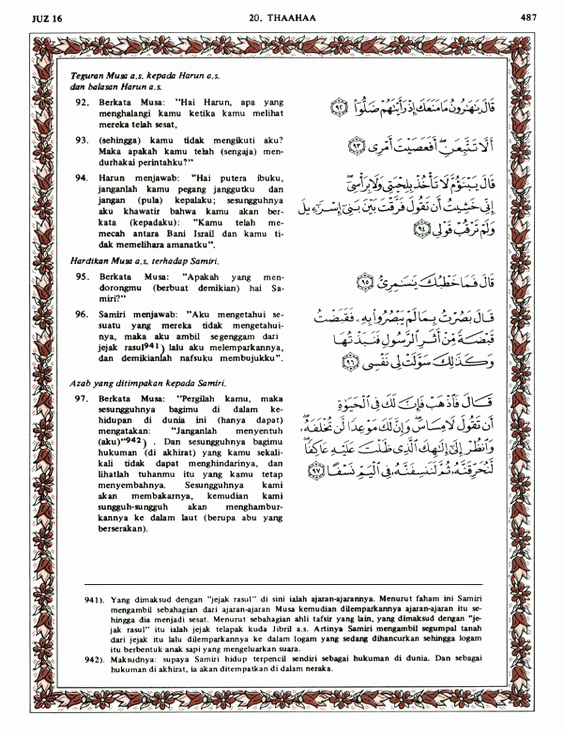 JUZ 16
20. THAAHAA
487
Teguran Musa a.s. kepada Harun a.s.
dan balasan Harun a.s.
92. Berkata Musa: "Hai Harun, apa yang
menghalangi kamu ketika kamu melihat
mereka telah sesat,
قَالَ يَٰهَٰرُونُ مَا مَنَعَكَ إِذْ رَأَيْتَهُمْ ضَلُّوٓا۟ ﴿٩٢﴾
93. (sehingga) kamu tidak mengikuti aku?
Maka apakah kamu telah (sengaja) men-
durhakai perintahku?"
أَلَّا تَتَّبِعَنِ ۖ أَفَعَصَيْتَ أَمْرِى ﴿٩٣﴾
94. Harun menjawab: "Hai putera ibuku,
janganlah kamu pegang janggutku dan
jangan (pula) kepalaku; sesungguhnya
aku khawatir bahwa kamu akan ber-
kata (kepadaku): "Kamu telah me-
mecah antara Bani Israil dan kamu ti-
dak memelihara amanatku".
قَالَ يَبْنَؤُمَّ لَا تَأْخُذْ بِلِحْيَتِى وَلَا بِرَأْسِىٓ ۖ
إِنِّى خَشِيتُ أَن تَقُولَ فَرَّقْتَ بَيْنَ بَنِىٓ إِسْرَٰٓءِيلَ
وَلَمْ تَرْقُبْ قَوْلِى ﴿٩٤﴾
Hardikan Musa a.s. terhadap Samiri.
95. Berkata Musa: "Apakah yang men-
dorongmu (berbuat demikian) hai Sa-
miri?"
قَالَ فَمَا خَطْبُكَ يَٰسَٰمِرِىُّ ﴿٩٥﴾
96. Samiri menjawab: "Aku mengetahui se-
suatu yang mereka tidak mengetahui-
nya, maka aku ambil segenggam dari
jejak rasul941) lalu aku melemparkannya,
dan demikianlah nafsuku membujukku".
قَالَ بَصُرْتُ بِمَا لَمْ يَبْصُرُوا۟ بِهِۦ فَقَبَضْتُ
قَبْضَةً مِّنْ أَثَرِ الرَّسُولِ فَنَبَذْتُهَا
وَكَذَٰلِكَ سَوَّلَتْ لِى نَفْسِى ﴿٩٦﴾
Azab yang ditimpakan kepada Samiri.
97. Berkata Musa: "Pergilah kamu, maka
sesungguhnya bagimu di dalam ke-
hidupan di dunia ini (hanya dapat)
mengatakan: "Janganlah menyentuh
(aku)"942) . Dan sesungguhnya bagimu
hukuman (di akhirat) yang kamu sekali-
kali tidak dapat menghindarinya, dan
lihatlah tuhanmu itu yang kamu tetap
menyembahnya. Sesungguhnya kami
akan membakarnya, kemudian kami
sungguh-sungguh akan menghambur-
kannya ke dalam laut (berupa abu yang
berserakan).
قَالَ فَاذْهَبْ فَإِنَّ لَكَ فِى الْحَيَوٰةِ
أَن تَقُولَ لَا مِسَاسَ ۖ وَإِنَّ لَكَ مَوْعِدًا لَّن تُخْلَفَهُۥ ۖ
وَانظُرْ إِلَىٰٓ إِلَٰهِكَ الَّذِى ظَلْتَ عَلَيْهِ عَاكِفًا ۖ
لَّنُحَرِّقَنَّهُۥ ثُمَّ لَنَنسِفَنَّهُۥ فِى الْيَمِّ نَسْفًا ﴿٩٧﴾
941). Yang dimaksud dengan "jejak rasul" di sini ialah ajaran-ajarannya. Menurut faham ini Samiri
mengambil sebahagian dari ajaran-ajaran Musa kemudian dilemparkannya ajaran-ajaran itu se-
hingga dia menjadi sesat. Menurut sebahagian ahli tafsir yang lain, yang dimaksud dengan "je-
jak rasul" itu ialah jejak telapak kuda Jibril a.s. Artinya Samiri mengambil segumpal tanah
dari jejak itu lalu dilemparkannya ke dalam logam yang sedang dihancurkan sehingga logam
itu berbentuk anak sapi yang mengeluarkan suara.
942). Maksudnya: supaya Samiri hidup terpencil sendiri sebagai hukuman di dunia. Dan sebagai
hukuman di akhirat, ia akan ditempatkan di dalam neraka.